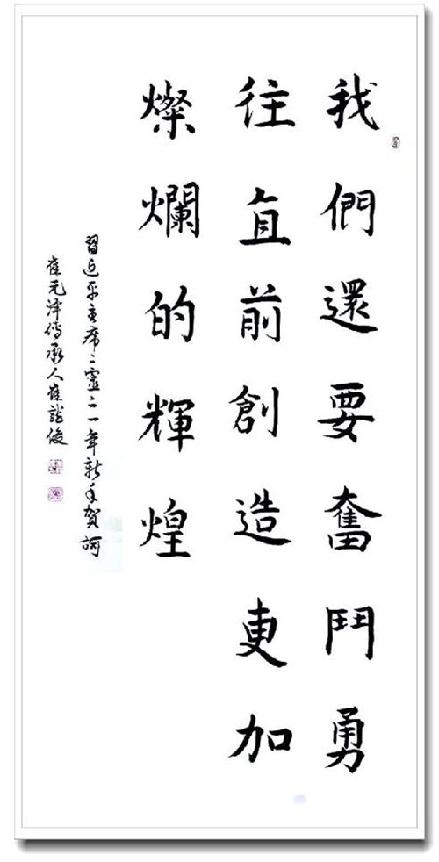 我們還要奮鬥勇
往直前創造更加
燦爛的輝煌
習近平主席二零二一年新年賀詞
崔元傳承人崔俊